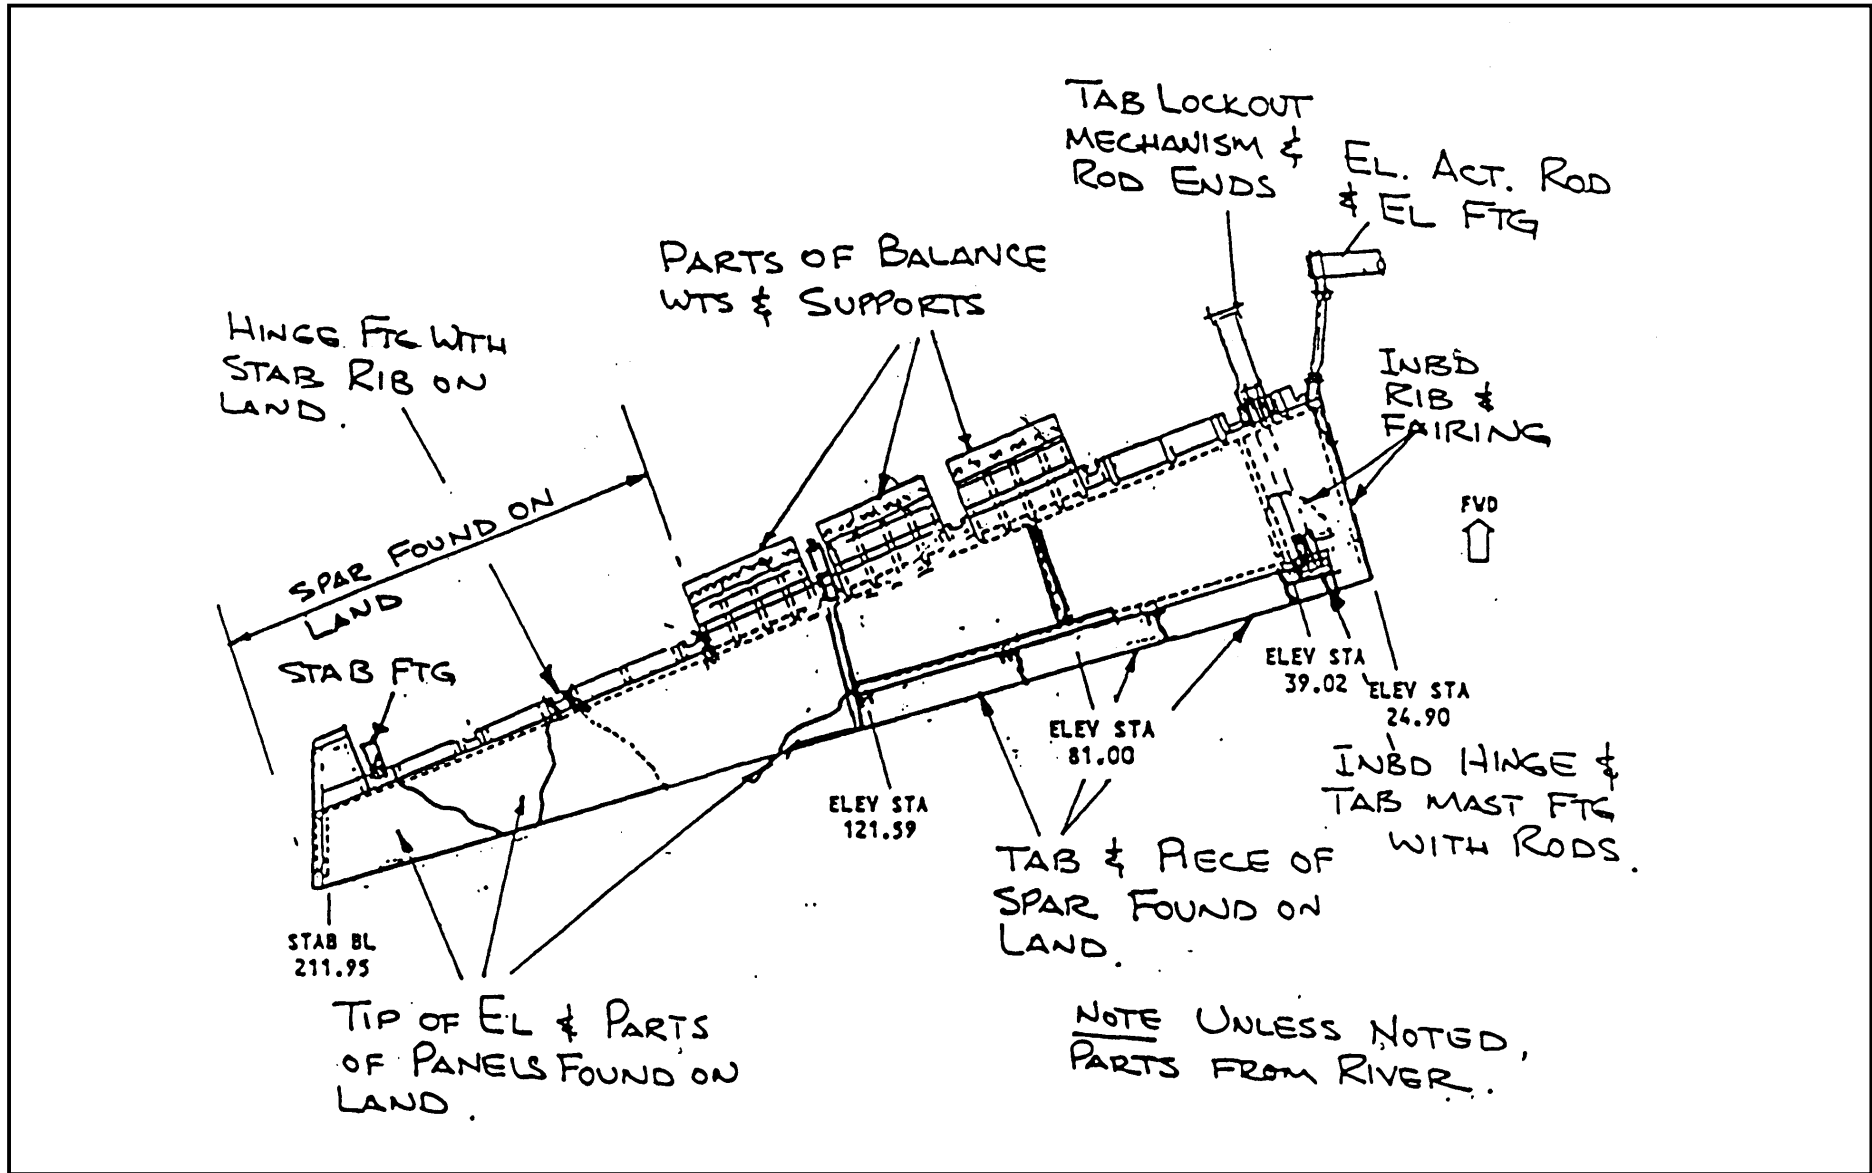 TAB LOCKOUT
MECHANISM &
ROD ENDS
EL. ACT. ROD
& EL FTG
PARTS OF BALANCE
WTS & SUPPORTS
HINGE FTG WITH
STAB RIB ON
LAND.
INB'D
RIB &
FAIRING
SPAR FOUND ON
LAND
FWD
STAB FTG
ELEV STA
39.02
ELEV STA
24.90
ELEV STA
81.00
ELEV STA
121.59
INBD HINGE &
TAB MAST FTG
WITH RODS.
TAB & PIECE OF
SPAR FOUND ON
LAND.
STAB BL
211.95
TIP OF EL & PARTS
OF PANELS FOUND ON
LAND.
NOTE UNLESS NOTED,
PARTS FROM RIVER.